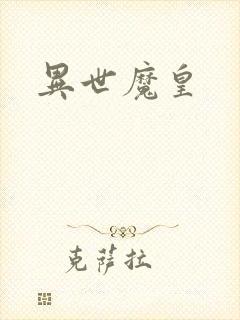 異世魔皇
克薩拉